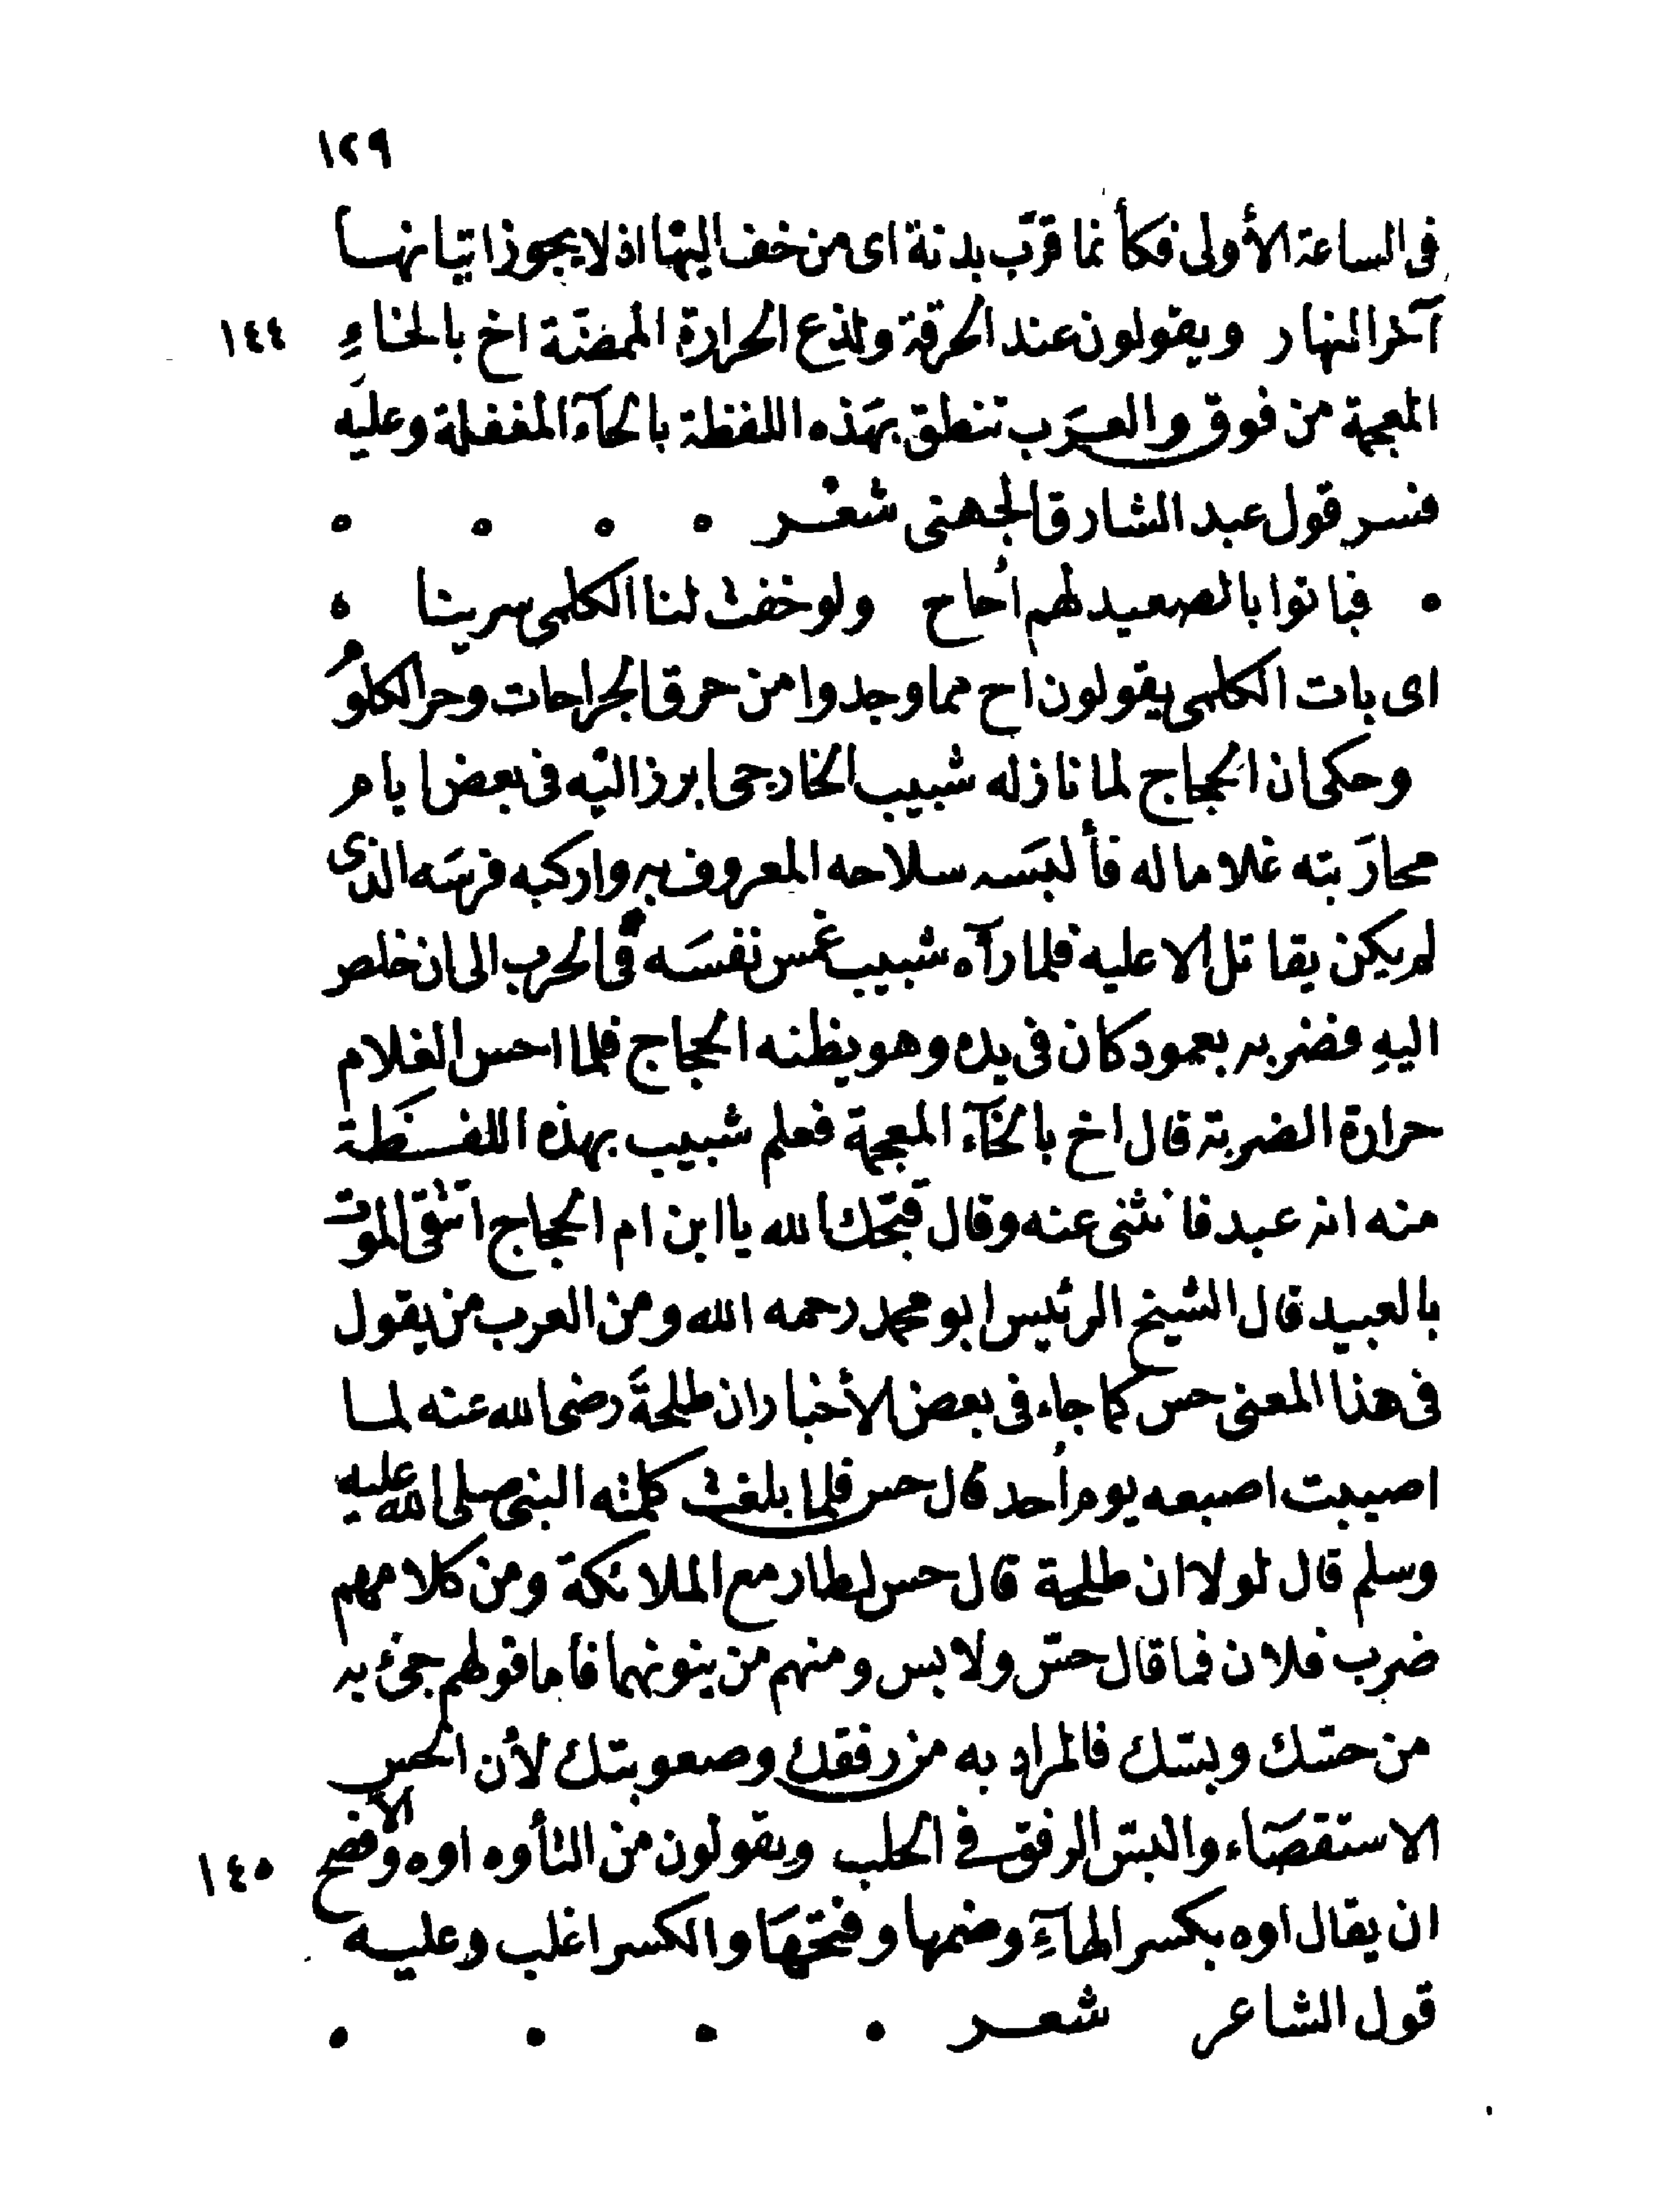 ١٢٩
فى الساعة الأولى فكأنما قرّب بدنة اى من خف اليها اذ لا يجوز اتيانها
آخر النهار ويقولون عند الحرقة ولذع الحرارة الممضّة اخ بالخاءِ ١٤٤
المعجمة من فوق والعرَب تنطق بهَذه اللفظة بالحآء المغفلة وعليه
فسر قول عبد الشارق الجهنى شعْر
فباتوا بالصعيد لهم أحاح ولو خفت لنا الكلمى سرينا
اى بات الكلمى يقولون اح مما وجدوا من حرق الجراحات وحر الكلومُ
وحكى ان الحجاج لما نازله شبيب الخارجى ابرز اليه فى بعض ايام
محارَبته غلاما له فألبسَه سلاحه المعروف به واركبه فرسَه الذى
لم يكن يقاتل الا عليه فلما رآه شبيب غمس نفسَه فى الحرب الى ان خلص
اليهِ فضربه بعمود كان فى يده وهو يظنه الحجاج فلما احس الغلام
حرارة الضربة قال اخ بالخآء المعجمة فعلم شبيب بهذه اللفظَة
منه انه عبد فانثنى عنه وقال قبّحك الله يا ابن ام الحجاج اتتقى الموت
بالعبيد قال الشيخ الرئيس ابو محمد رحمه الله ومن العرب من يقول
فى هذا المعنى حس كما جاء فى بعض الأخبار ان طلحةَ رضى الله عنه لما
اصيبت اصبعه يوم أحد قال حس فلما بلغت كلمته النبى صلى الله عليه
وسلم قال لولا ان طلحة قال حس لطار مع الملائكة ومن كلامهم
ضرب فلان فما قال حسّ ولا بس ومنهم من ينونهما فاما قولهم جئ به
من حسّك وبسّك فالمراد به من رفقك وصعوبتك لأن الحس
الاستقصَاء والبسّ الرفق فى الحلب ويقولون من التأوه اوه والافصح ١٤٥
ان يقال اوه بكسر الهآءِ وضمها وفتحهَا والكسر اغلب وعليه
قول الشاعر شعر